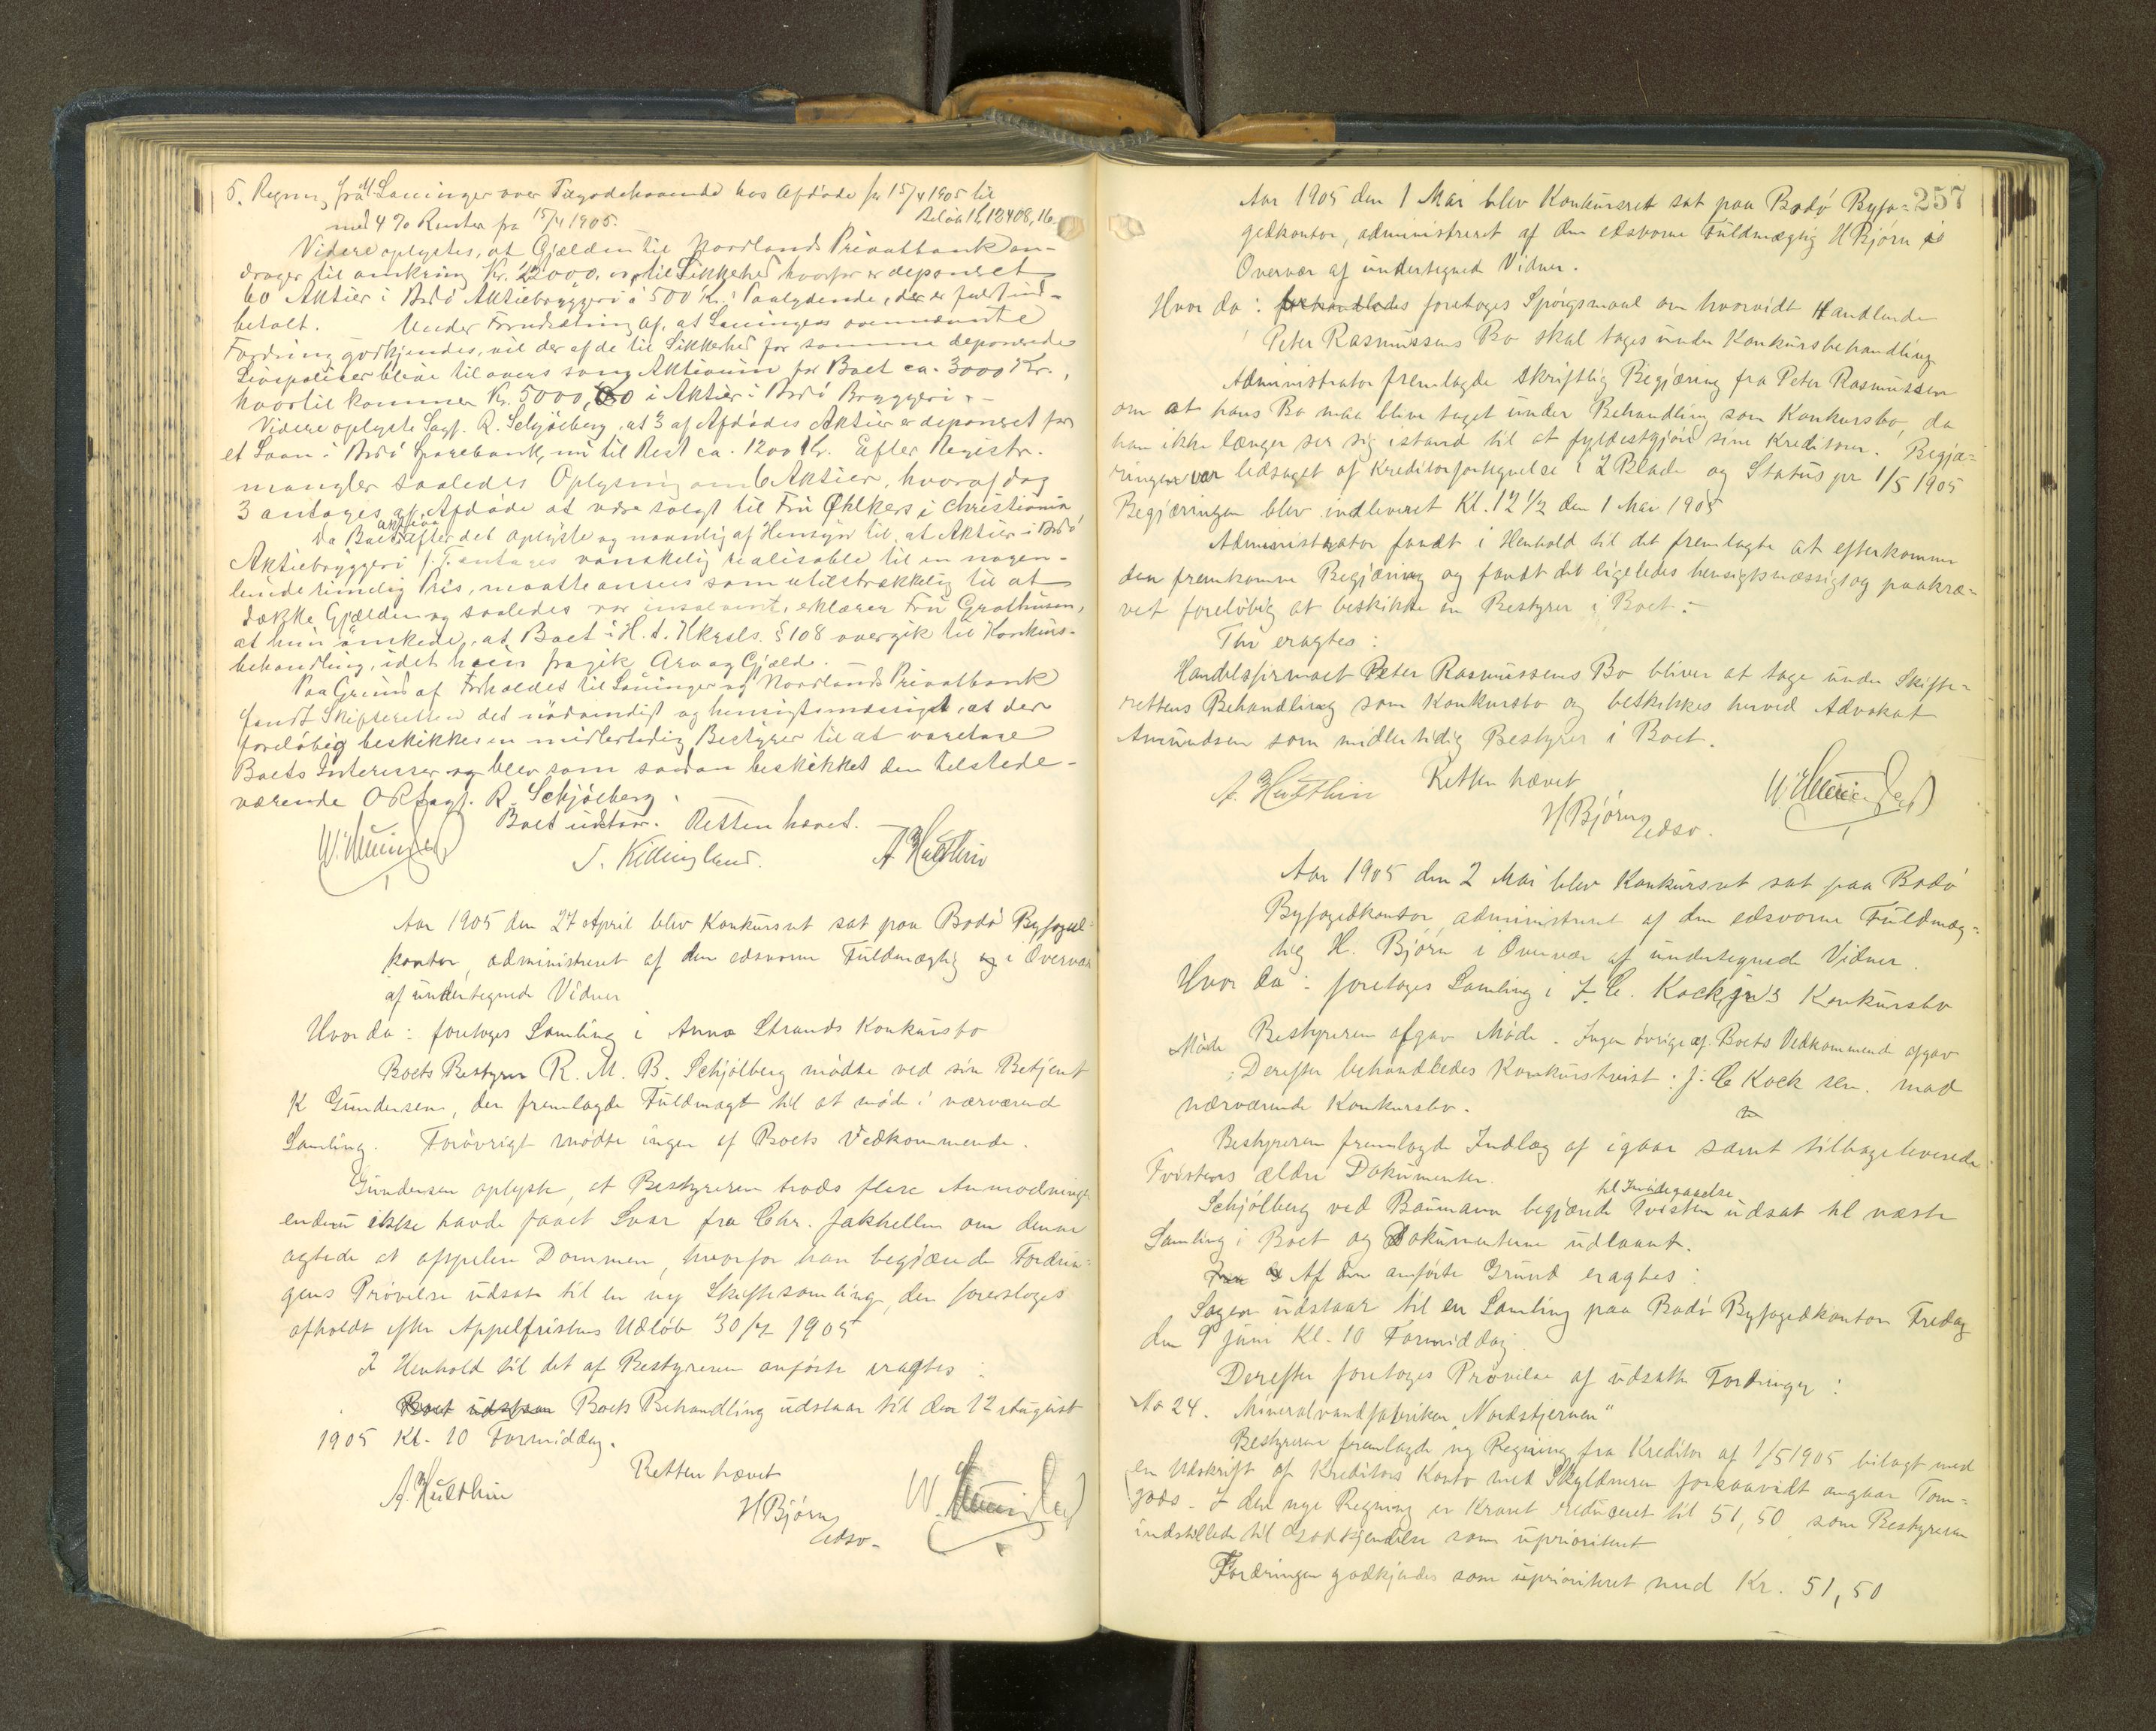 5. Regning fra M Launinger over Tilgodehavende hos Afdøde pr 15/4 1905 til
Beløb Kr 12408,16
med 4 % Renter fra 15/4 1905.
Videre oplystes, at Gjælden til Nordlands Privatbank an-
drager til omkring Kr. 22000, og til Sikkerhed hvorfor er deponeret
60 Aktier i Bodø Aktiebryggeri á 500 Kr. Paalydende, der er fuldt ind-
betalt. Under Forudsætning af, at Launingers ovennævnte
Fordring godkjendes, vil der af de til Sikkerhed for samme deponerede
Livspoliser blive tilovers som Aktivum for Boet ca. 3000 Kr.,
hvortil kommer Kr. 5000,00 i Aktier i Bodø Bryggeri. -
Videre oplyste Sagf. R. Schjølberg, at 3 af Afdødes Aktier er deponeret for
et Laan i Bodø Sparebank, nu til Rest ca. 1200 Kr. Efter Registr.
mangler saaledes Oplysning om 6 Aktier, hvoraf dog
3 antages af Afdøde at være solgt til Fru Øhlkers i Christiania
Da Boets Aktiva efter det oplyste og navnlig af Hensyn til, at Aktier i Bodø
Aktiebryggeri f. T. antages vanskelig realisable til en nogen-
lunde rimelig Pris, maatte ansees som utilstrækkelig til at
dække Gjælden og saaledes var insolvent, erklærer Fru Grothusen,
at hun ønskede, at Boet i H. t. Kkrsls. § 108 overgik til Konkurs-
behandling, idet hun fragik Arv og Gjæld.
Paa Grund af Forholdet til Launinger og Nordlands Privatbank
fandt Skifteretten det nødvendigt og hensigtsmæssigt, at der
foreløbig beskikkes en midlertidig Bestyrer til at varetage
Boets Interesser og blev som saadan beskikket den tilstede-
værende ORsagf. R. Schjølberg.
Boet udstaar. Retten hævet.
J. Killingland. A Hulthin
Aar 1905 den 27 April blev Konkursret sat paa Bodø Byfoged=
kontor, administreret af den edsvorne Fuldmægtig og i Overvær
af undertegnede Vidner
Hvor da: foretoges Samling i Anna Strands Konkursbo
Boets Bestyrer R. M. B. Schjølberg mødte ved sin Betjent
K Gundersen, der fremlagde Fuldmagt til at møde i nærværende
Samling. Forøvrigt mødte ingen af Boets Vedkommende.
Gundersen oplyste, at Bestyreren trods flere Anmodninger
endnu ikke havde faaet Svar fra Chr. Jakhelln om denne
agtede at appelere Dommen, hvorfor han begjærede Fordrin=
gens Prøvelse udsat til en ny Skiftesamling, der foresloges
afholdt efter Appelfristens Udløb 30/7 1905
I Henhold til det af Bestyreren anførte eragtes:
Boet udstaar Boets Behandling udstaar til den 12 August
1905 Kl. 10 Formiddag.
Retten hævet
A. Hulthin
H Bjørn
edsv.
257
Aar 1905 den 1 Mai blev Konkursret sat paa Bodø Byfo=
gedkontor, administreret af den edsvorne Fuldmægtig H Bjørn i
Overvær af undertegnede Vidner.
Hvor da: forhandledes foretoges Spørgsmaal om hvorvidt Handlende
Peter Rasmussens Bo skal tages under Konkursbehandling
Administrator fremlagde skriftlig Begjæring fra Peter Rasmussen
om at hans Bo maa blive taget under Behandling som Konkursbo, da
han ikke længer ser sig istand til at fyldestgjøre sine Kreditorer. Begjæ=
ringen var ledsaget af Kreditorfortegnelse i 2 Blade og Status pr 1/5 1905
Begjæringen blev indleveret Kl. 12 1/2 den 1 Mai 1905
Administrator fandt i Henhold til det fremlagte at efterkomme
den fremkomne Begjæring og fandt det ligeledes hensigtsmæssigt og paakræ=
vet foreløbig at beskikke en Bestyrer i Boet. -
Thi eragtes:
Handelsfirmaet Peter Rasmussens Bo bliver at tage under Skifte=
rettens Behandling som Konkursbo og beskikkes herved Advokat
Amundsen som midlertidig Bestyrer i Boet.
Retten hævet
A. Hulthin
H Bjørn
edsv.
Aar 1905 den 2 Mai blev Konkursret sat paa Bodø
Byfogedkontor administreret af den edsvorne Fuldmæg=
tig H. Bjørn i Overvær af undertegnede Vidner.
Hvor da: foretoges Samling i J. C. Kock jr's Konkursbo
Bestyreren afgav Møde. Ingen øvrige af Boets Vedkommende afgav
Møde
Derefter behandledes Konkurstvist: J. C Kock sen. mod
nærværende Konkursbo.
Bestyreren fremlagde Indlæg af igaar samt tilbageleverede
Tvistens ældre Dokumenter.
Schjølberg ved Baumann begjærede Tvisten til Imødegaaelse udsat til næste
Samling i Boet og Dokumenterne udlaant.
Af den anførte Grund eragtes:
Sagen udstaar til en Samling paa Bodø Byfogedkontor Fredag
den 9 Juni Kl. 10 Formiddag.
Derefter foretoges Prøvelse af udsatte Fordringer:
No 24. Mineralvandfabriken "Nordstjernen"
Bestyreren fremlagde ny Regning fra Kreditor af 1/5 1905 bilagt med
en Udskrift af Kreditors Konto med Skyldneren forsaavidt angaar Tom=
gods. I den nye Regning er Kravet reduceret til 51,50 som Bestyreren
indstillede til Godkjendelse som uprioriteret
Fordringen godkjendes som uprioriteret med Kr. 51,50